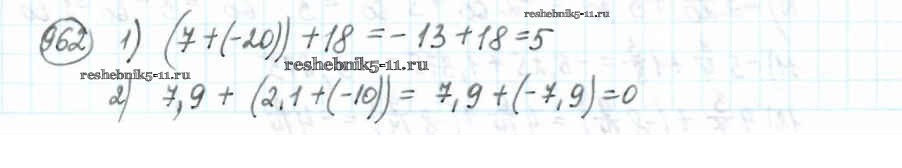 reshebnik5-11.ru
962 1) (7+(-20)) +18 = -13+18=5
reshebnik5-11.ru
reshebnik5-11.ru
2) 7,9 + (2,1+(-10)) = 7,9+(-7,9)=0